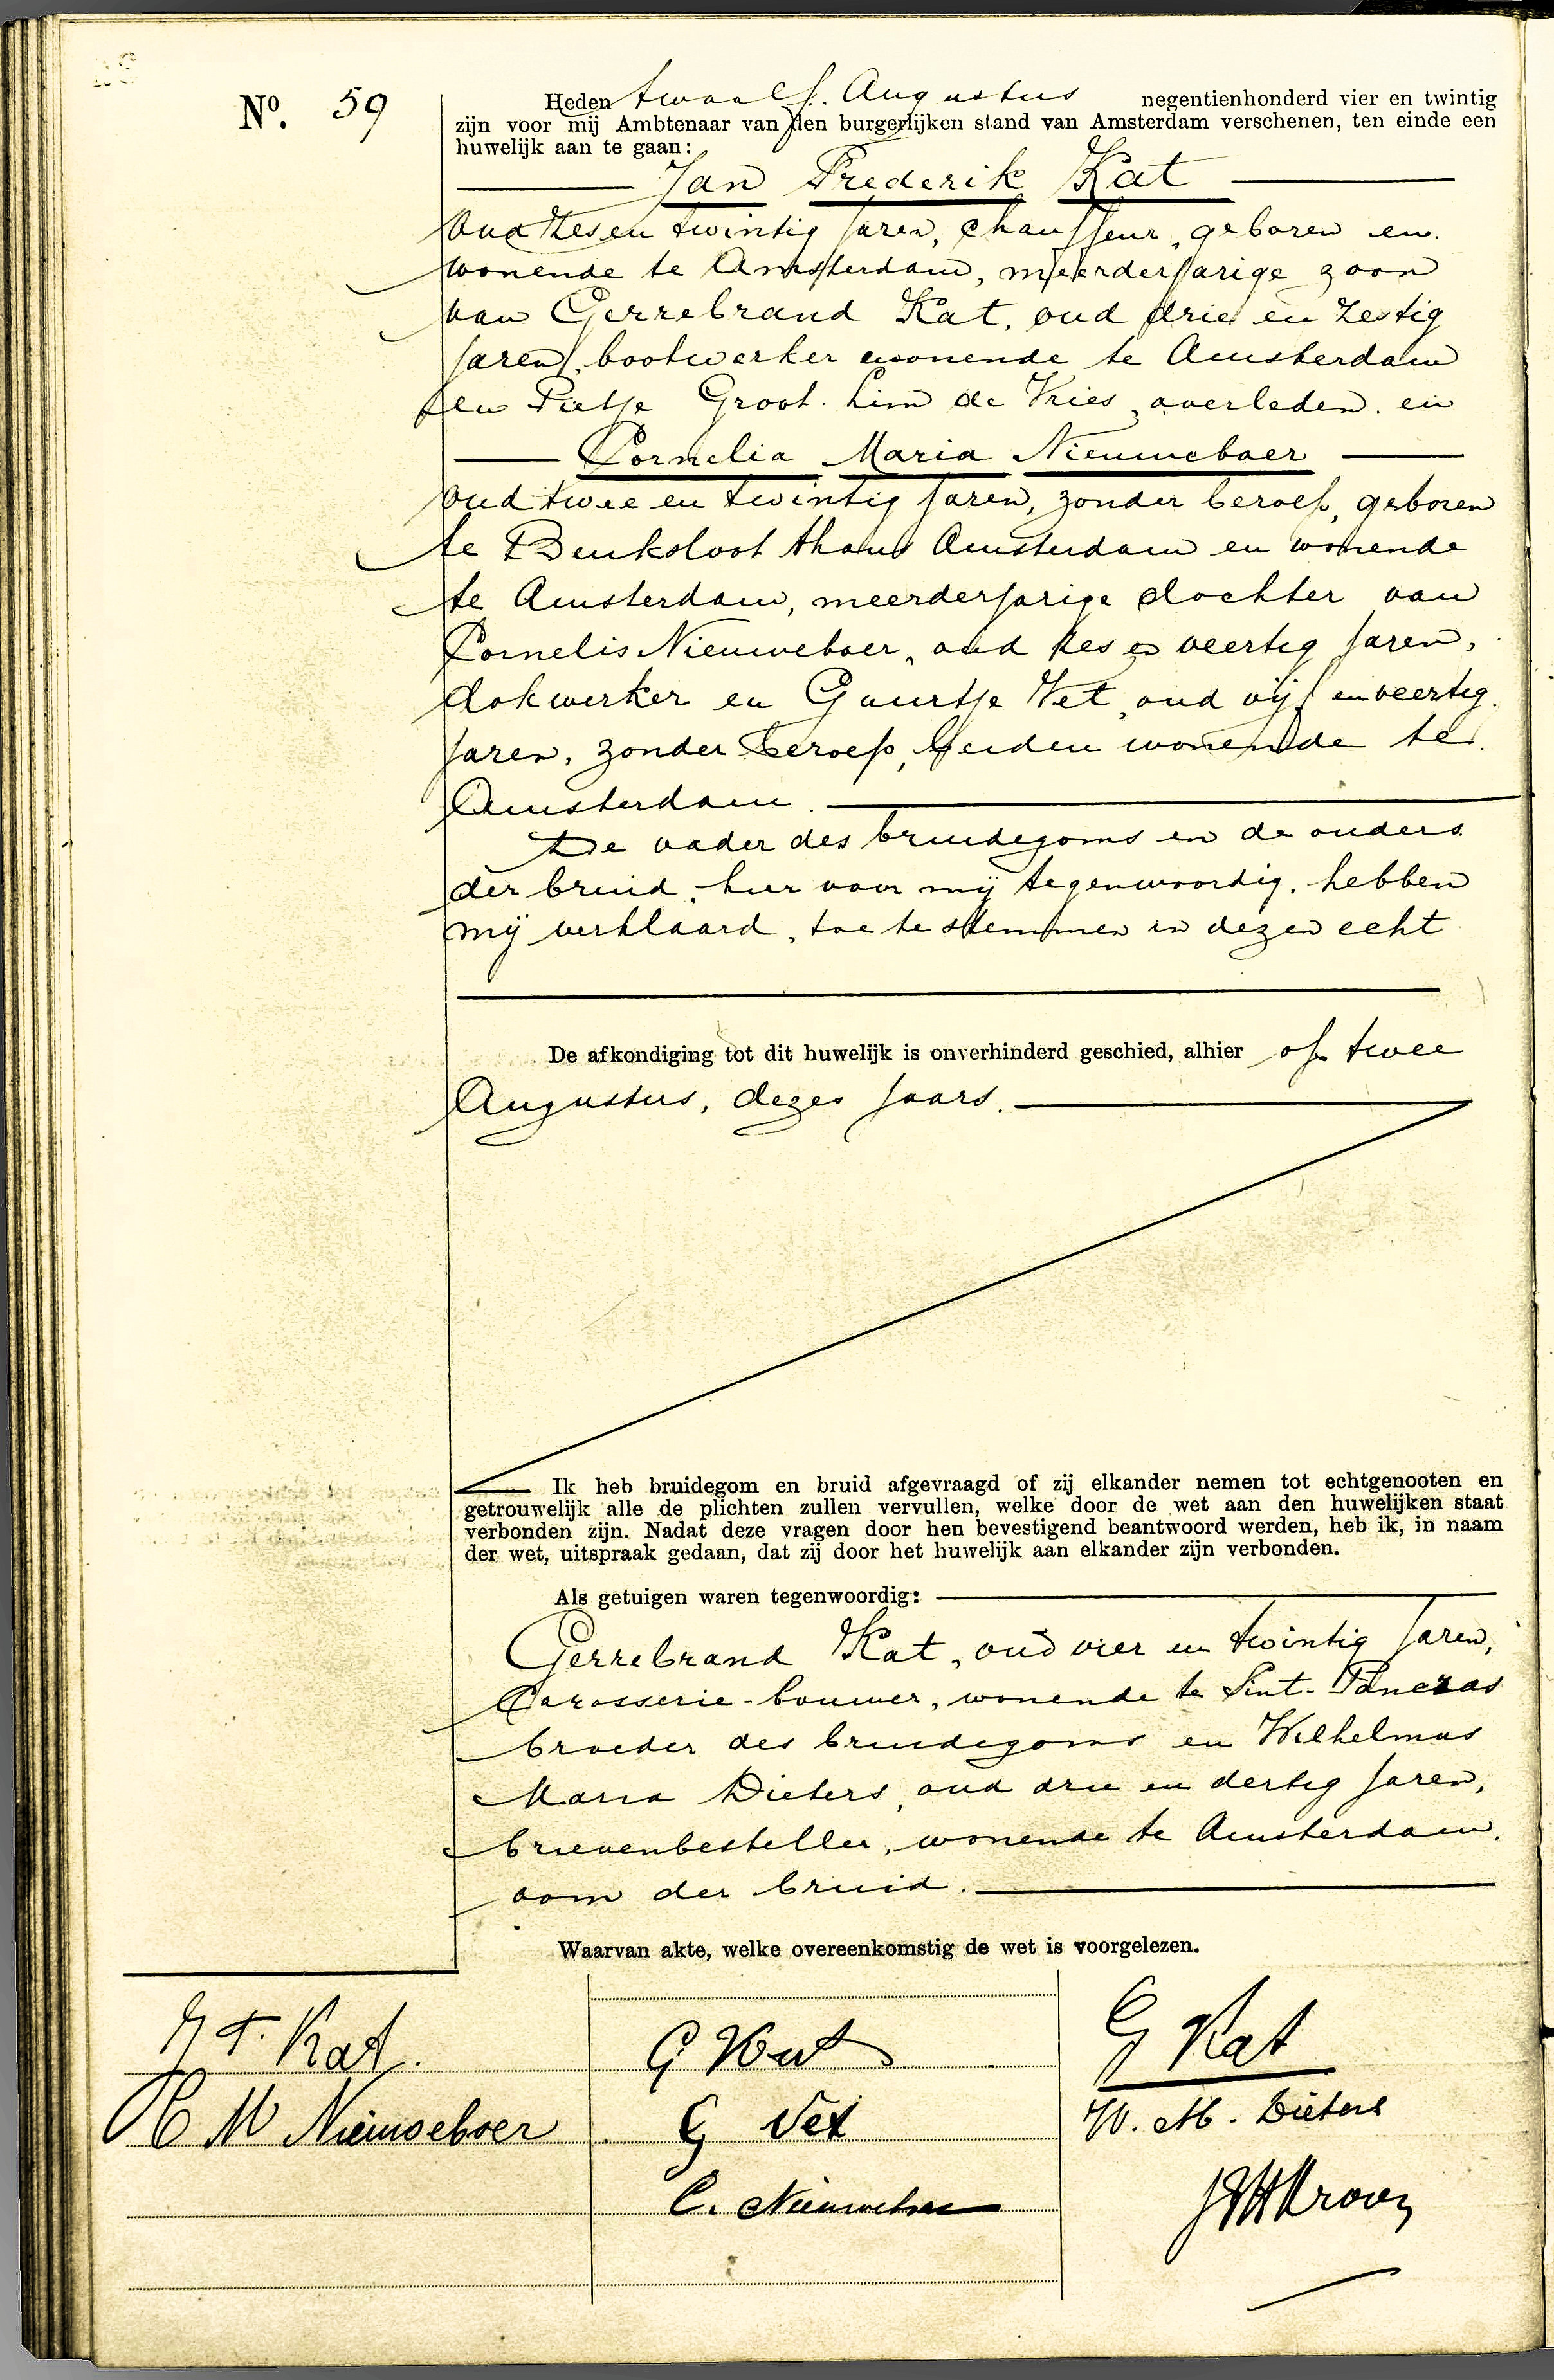 No. 59
Heden twaalf Augustus negentienhonderd vier en twintig
zijn voor mij Ambtenaar van den burgerlijken stand van Amsterdam verschenen, ten einde een
huwelijk aan te gaan:
Jan Frederik Kat
oud zes en twintig jaren, chauffeur, geboren en
wonende te Amsterdam, meerderjarige zoon
van Gerrebrand Kat, oud drie en zestig
jaren, bootwerker wonende te Amsterdam
en Pietje Groot. de Vries, overleden. en
Cornelia Maria Nieuweboer
oud twee en twintig jaren, zonder beroep, geboren
te Buiksloot thans Amsterdam en wonende
te Amsterdam, meerderjarige dochter van
Cornelis Nieuweboer, oud zes en veertig jaren,
dokwerker en Guurtje Vet, oud vijf en veertig
jaren, zonder beroep, beiden wonende te
Amsterdam.
De vader des bruidegoms en de ouders
der bruid, hier voor mij tegenwoordig, hebben
mij verklaard, toe te stemmen in dezen echt
De afkondiging tot dit huwelijk is onverhinderd geschied, alhier op twee
Augustus, dezes jaars.
Ik heb bruidegom en bruid afgevraagd of zij elkander nemen tot echtgenooten en
getrouwelijk alle de plichten zullen vervullen, welke door de wet aan den huwelijken staat
verbonden zijn. Nadat deze vragen door hen bevestigend beantwoord werden, heb ik, in naam
der wet, uitspraak gedaan, dat zij door het huwelijk aan elkander zijn verbonden.
Als getuigen waren tegenwoordig:
Gerrebrand Kat, oud vier en twintig jaren,
Carosserie-bouwer, wonende te Sint-Pancras
broeder des bruidegoms en Wilhelmus
Maria Dieters, oud drie en dertig jaren,
brievenbesteller, wonende te Amsterdam,
oom der bruid.
Waarvan akte, welke overeenkomstig de wet is voorgelezen.
J F. Kat.
C M Nieuweboer
G Kat
G Vet
C. Nieuweboer
G Kat
W. M. Dieters